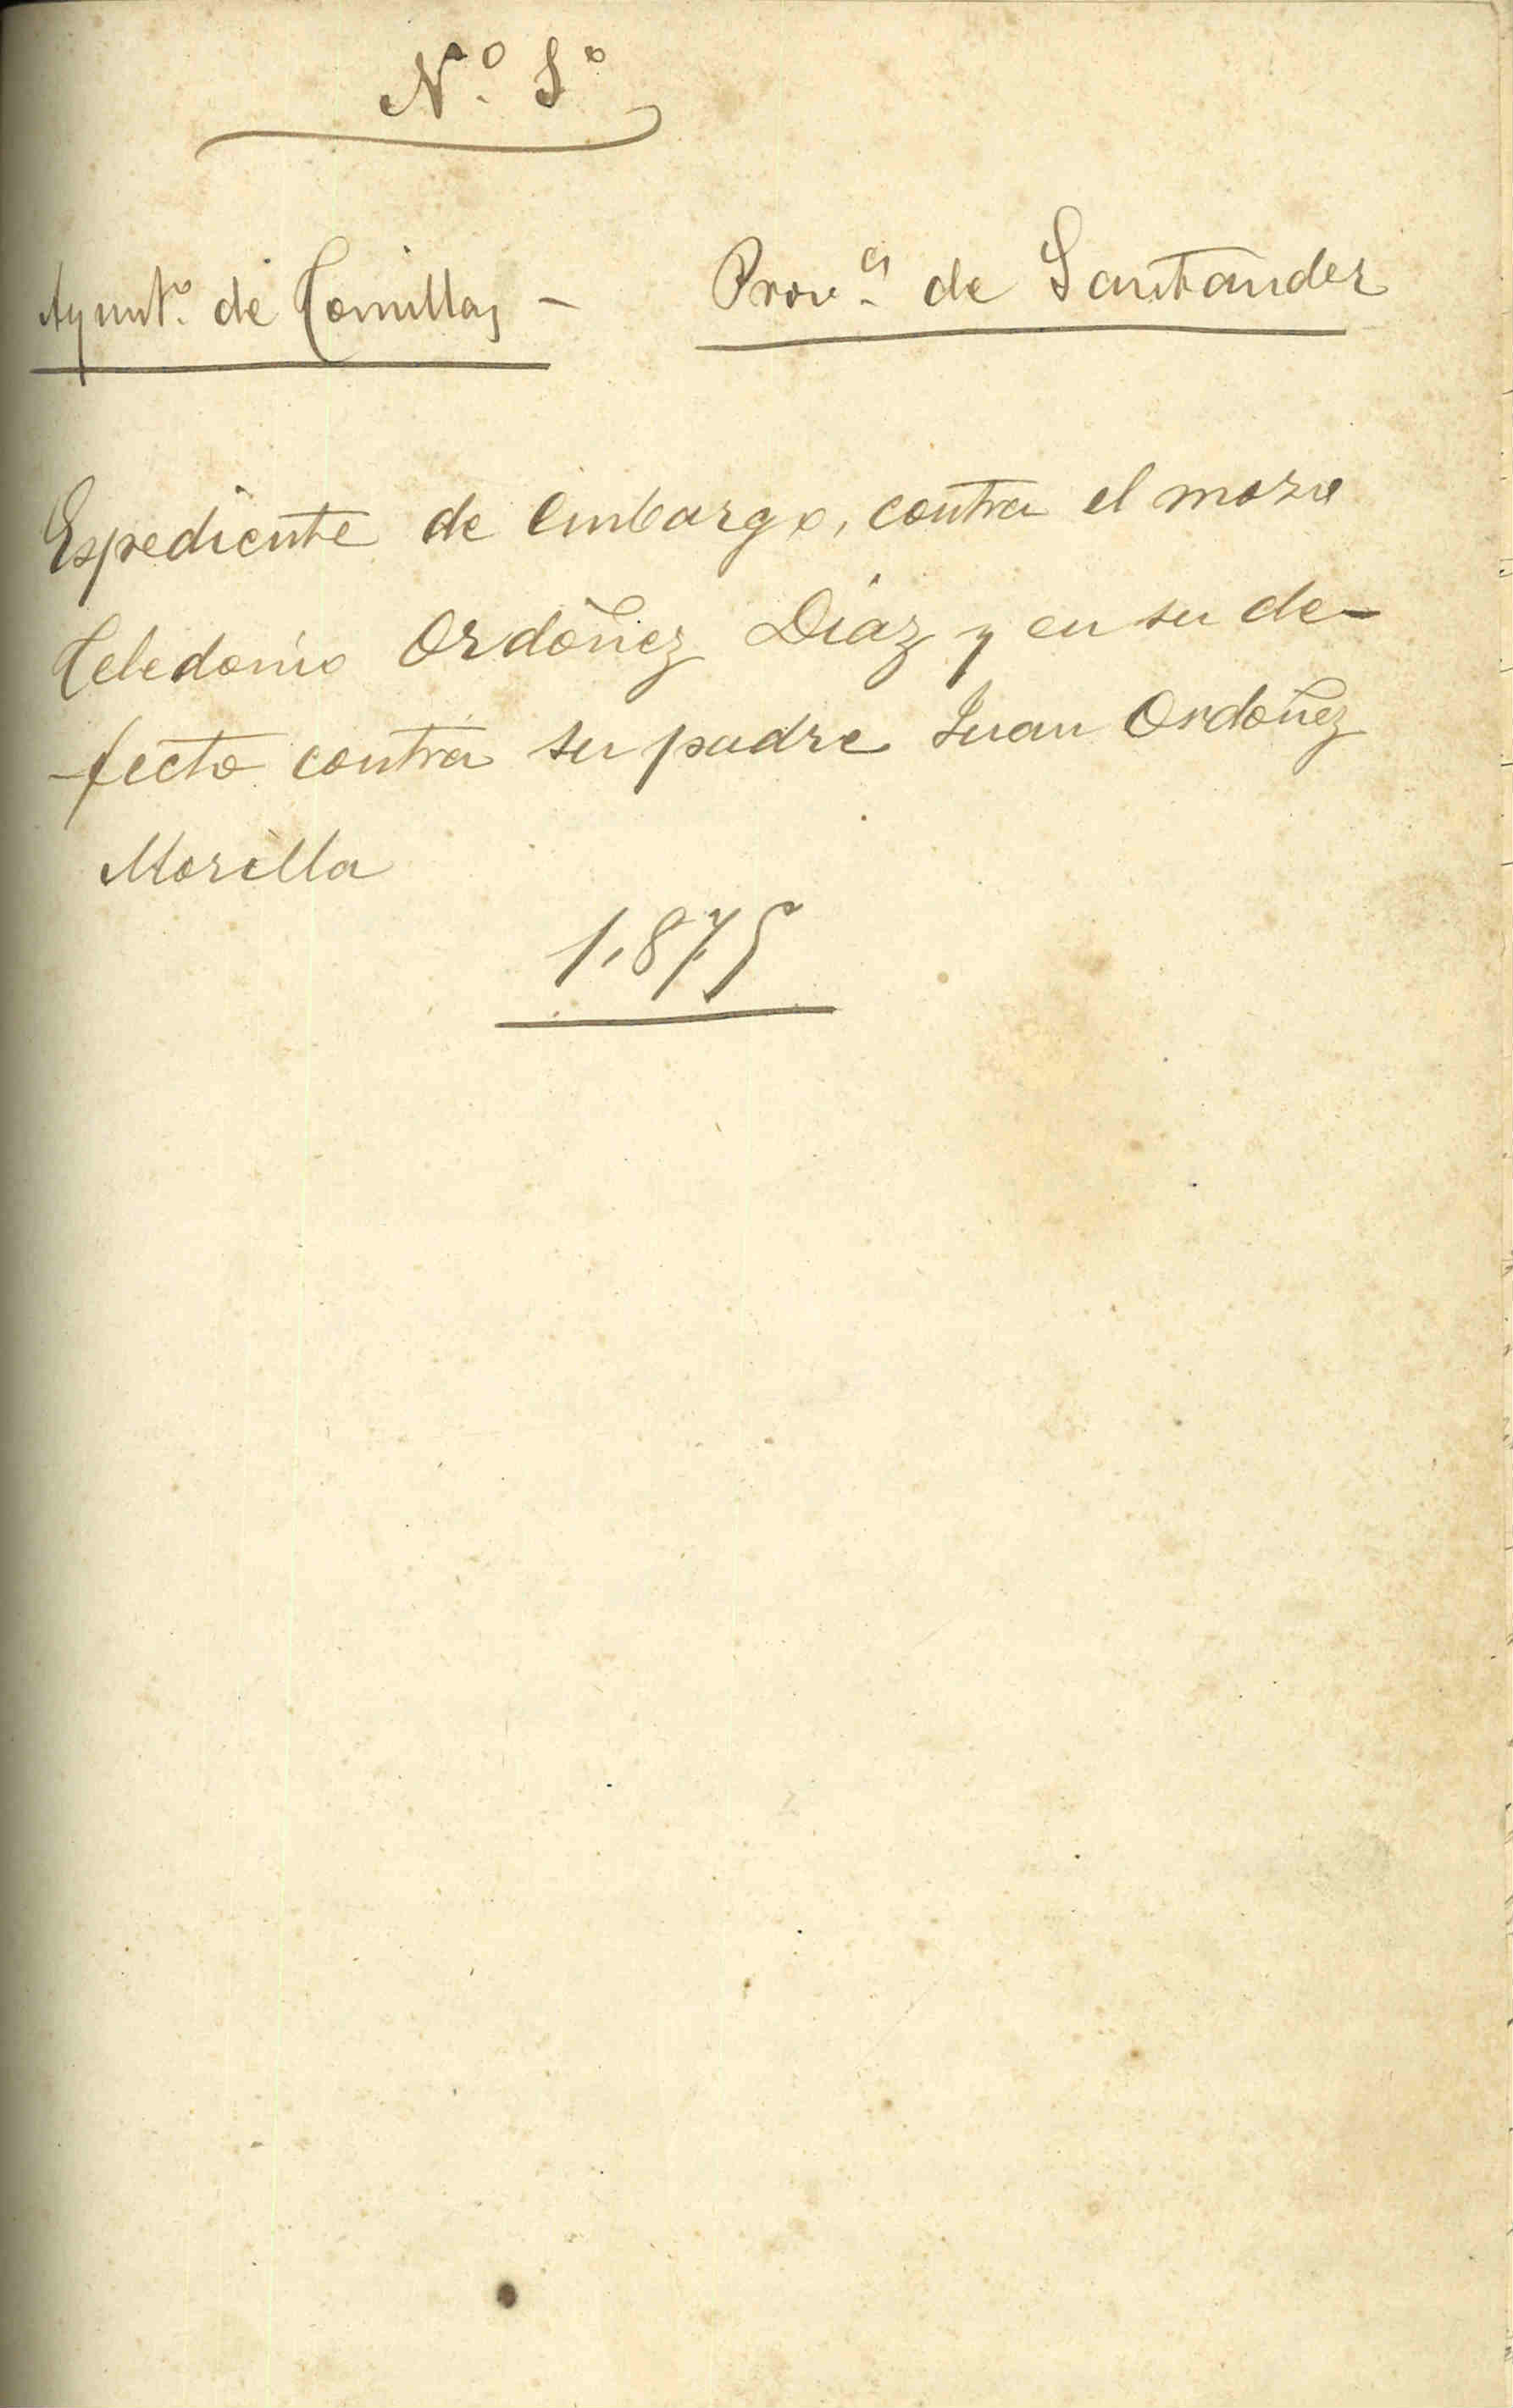 N.º 5º
Ayunt.º de Comillas - Prov.ª de Santander
Espediente de embargo, contra el mozo
Celedonio Ordoñez Diaz y en su de-
-fecto contra su padre Juan Ordoñez
Morilla
1,875